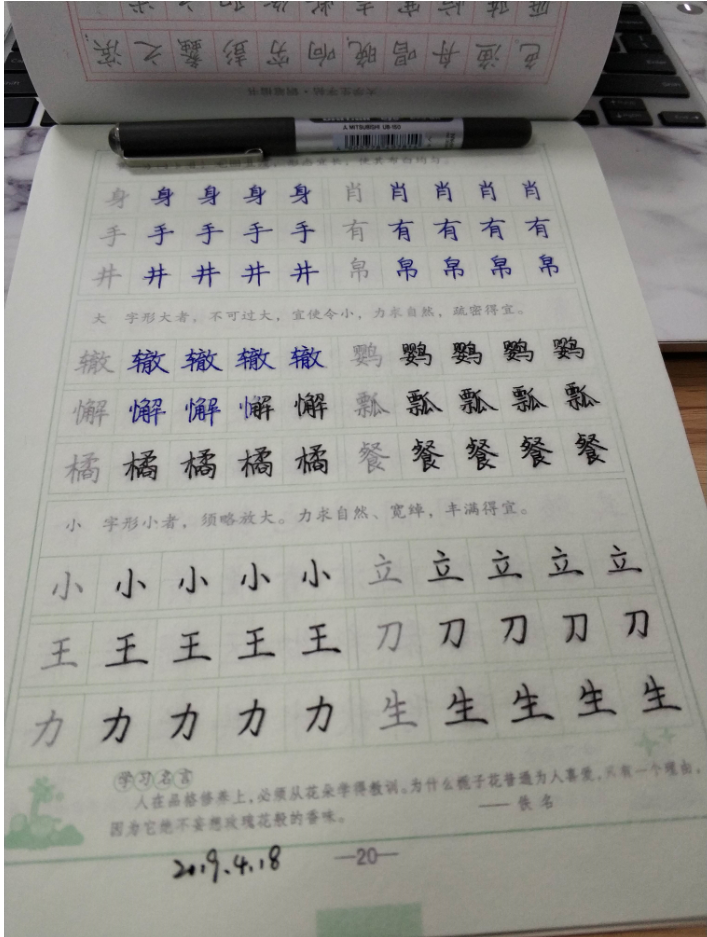 色渔舟唱晚响穷彭蠡之滨
大学生字帖·钢笔楷书
MITSUBISHI UB-150
身身身身身肖肖肖肖肖
手手手手手有有有有有
井井井井井帛帛帛帛帛
大 字形大者，不可过大，宜使令小，力求自然，疏密得宜。
辙辙辙辙辙鹦鹦鹦鹦鹦
懈懈懈懈懈瓢瓢瓢瓢瓢
橘橘橘橘橘餐餐餐餐餐
小 字形小者，须略放大。力求自然、宽绰，丰满得宜。
小小小小小立立立立立
王王王王王刀刀刀刀刀
力力力力力生生生生生
学习名言
人在品格修养上，必须从花朵学得教训。为什么栀子花普通为人喜爱，只有一个理由，
因为它绝不妄想玫瑰花般的香味。
—— 佚名
2019.4.18
—20—